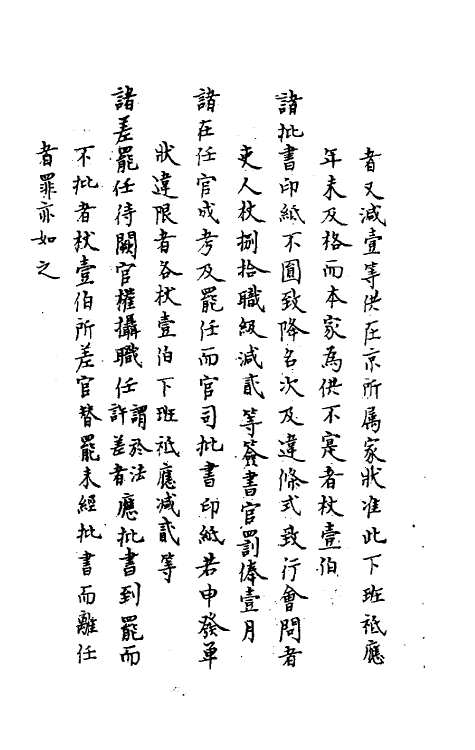 者又減壹等供在京所属家狀准此下班祗應
年未及格而本家為供不寔者杖壹伯
諸批書印紙不圓致降名次及違條式致行會問者
吏人杖捌拾職級減貳等簽書官罰俸壹月
諸在任官成考及罷任而官司批書印紙若申發單
狀違限者各杖壹伯下班祗應減貳等
諸差罷任待闕官權攝職任謂於法許差者應批書到罷而
不批者杖壹伯所差官替罷未經批書而離任
者罪亦如之